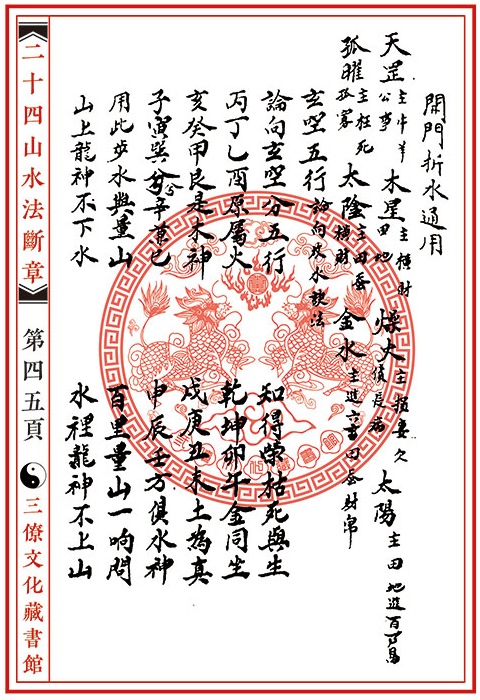 開門折水通用
天罡 主牛羊公事 木星 主橫財田地 燥火 主損妻欠債 太陽 主田地進百萬
孤曜 主枉死孤寡 太陰 主田蚕橫財 金水 主進六畜田蚕財帛
玄空五行 論向放水訣法
論向玄空分五行 知得榮枯死與生
丙丁乙酉原屬火 乾坤卯午金同生
亥癸甲艮是木神 戌庚丑未土為真
子寅巽兮辛兼巳 申辰壬方俱水神
用此步水與量山 百里量山一响問
山上龍神不下水 水裡龍神不上山
二十四山水法斷章
第四五頁
三僚文化藏書館